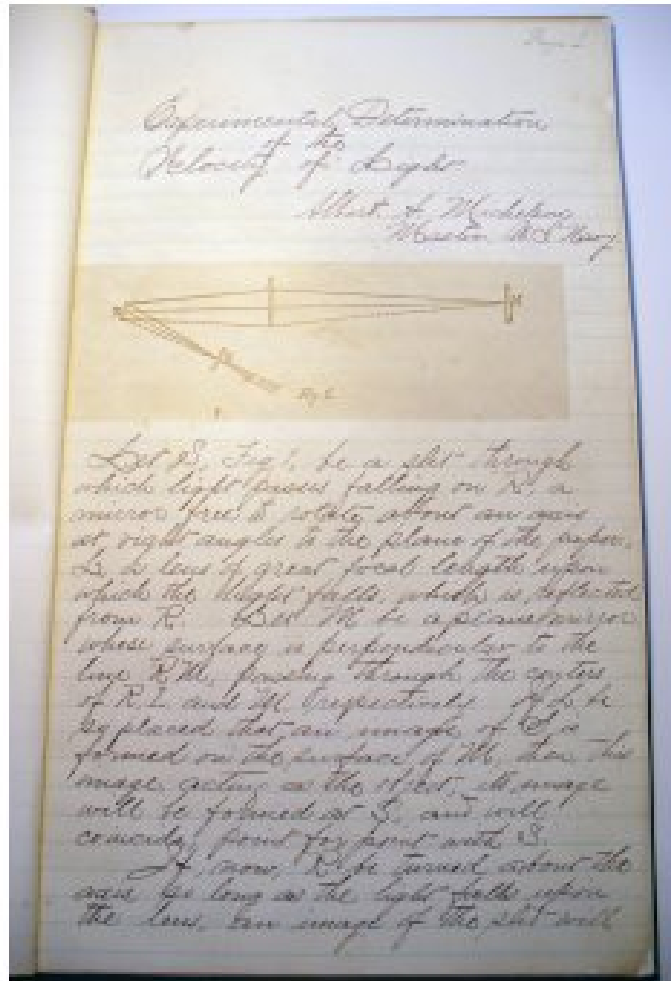 Experimental Determination
of the
Velocity of Light
Albert A. Michelson,
Master U.S. Navy
M
Let S, Fig 1, be a slit through
which light passes falling on R, a
mirror free to rotate about an axis
at right angles to the plane of the paper.
L a lens of great focal length upon
which the light falls which is reflected
from R. Let M be a plane mirror
whose surface is perpendicular to the
line R.M. passing through the centers
of R. L and M respectively. If L be
so placed that an image of S is
formed on the surface of M, then this
image acting as the object, its image
will be formed at S, and will
coincide, point for point with S.
If, now, R be turned about the
axis so long as the light falls upon
the lens, an image of the slit will